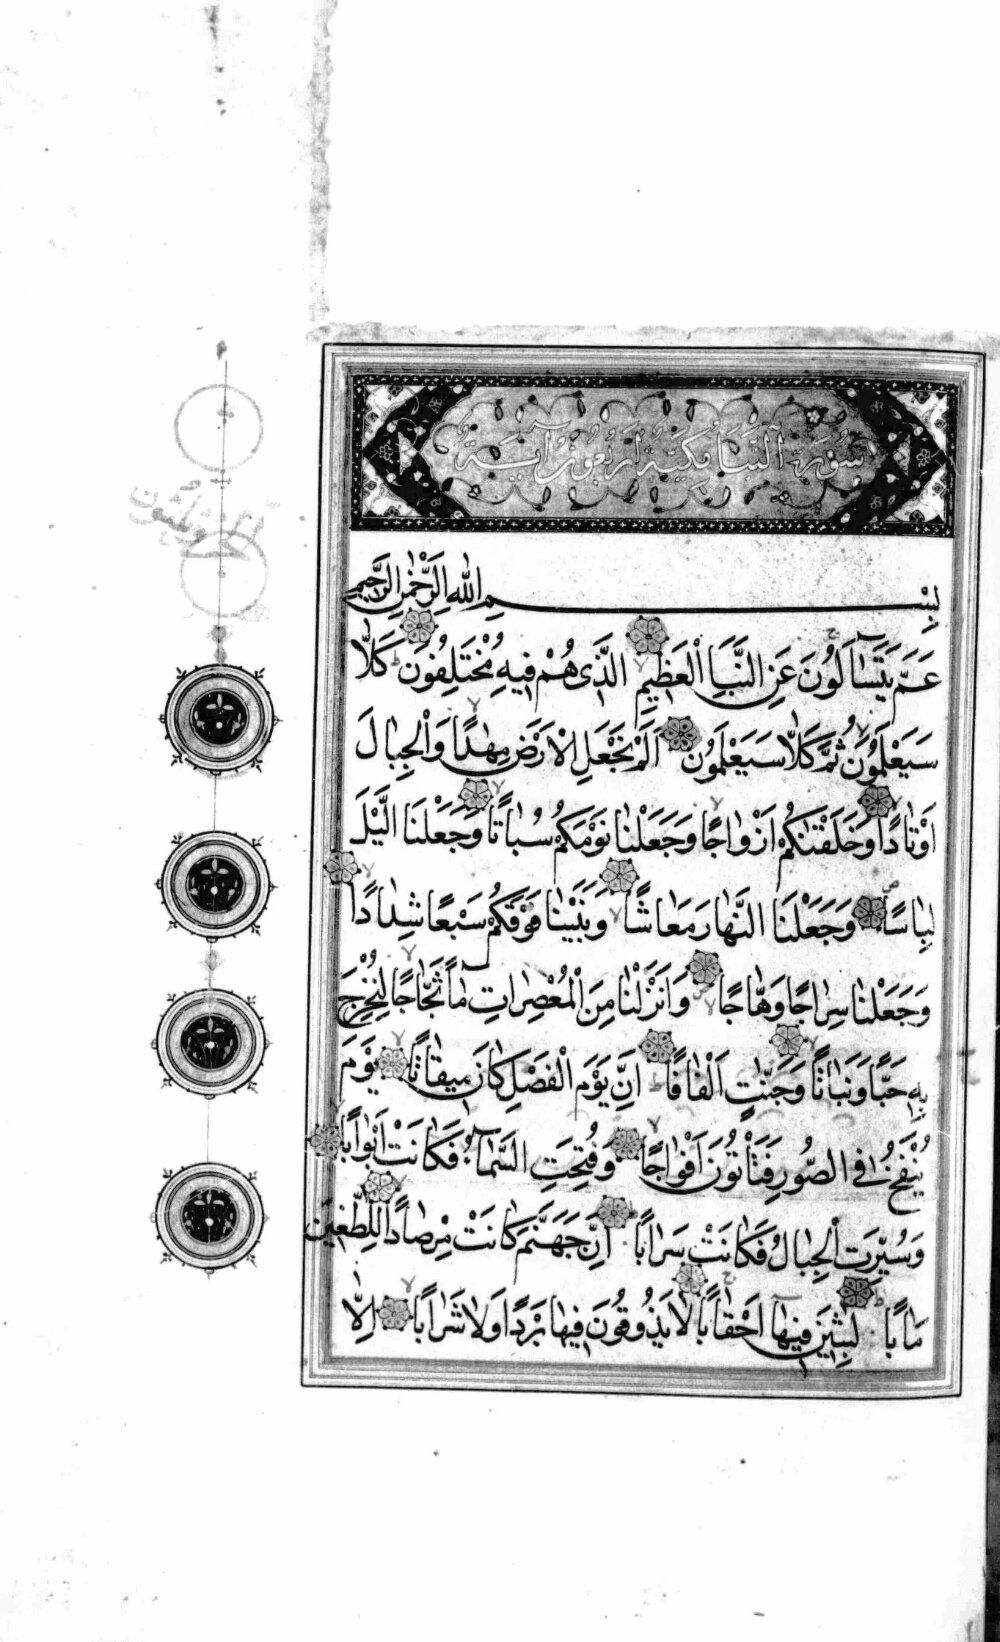 سورة النبا مكية اربعون آية
بِسْمِ اللهِ الرَّحْمٰنِ الرَّحِيمِ
عَمَّ يَتَسَآءَلُونَ عَنِ النَّبَاِ الْعَظِيمِ الَّذِى هُمْ فِيهِ مُخْتَلِفُونَ كَلَّا
سَيَعْلَمُونَ ثُمَّ كَلَّا سَيَعْلَمُونَ اَلَمْ نَجْعَلِ الْاَرْضَ مِهٰدًا وَالْجِبَالَ
اَوْتَادًا وَخَلَقْنٰكُمْ اَزْوَاجًا وَجَعَلْنَا نَوْمَكُمْ سُبَاتًا وَجَعَلْنَا الَّيْلَ
لِبَاسًا وَجَعَلْنَا النَّهَارَ مَعَاشًا وَبَنَيْنَا فَوْقَكُمْ سَبْعًا شِدَادًا
وَجَعَلْنَا سِرَاجًا وَهَّاجًا وَاَنْزَلْنَا مِنَ الْمُعْصِرَاتِ مَآءً ثَجَّاجًا لِنُخْرِجَ
بِهِ حَبًّا وَنَبَاتًا وَجَنّٰتٍ اَلْفَافًا اِنَّ يَوْمَ الْفَصْلِ كَانَ مِيقَاتًا يَوْمَ
يُنْفَخُ فِى الصُّورِ فَتَأْتُونَ اَفْوَاجًا وَفُتِحَتِ السَّمَآءُ فَكَانَتْ اَبْوَابًا
وَسُيِّرَتِ الْجِبَالُ فَكَانَتْ سَرَابًا اِنَّ جَهَنَّمَ كَانَتْ مِرْصَادًا لِلطّٰغِينَ
مَاٰبًا لٰبِثِينَ فِيهَآ اَحْقَابًا لَا يَذُوقُونَ فِيهَا بَرْدًا وَلَا شَرَابًا اِلَّا